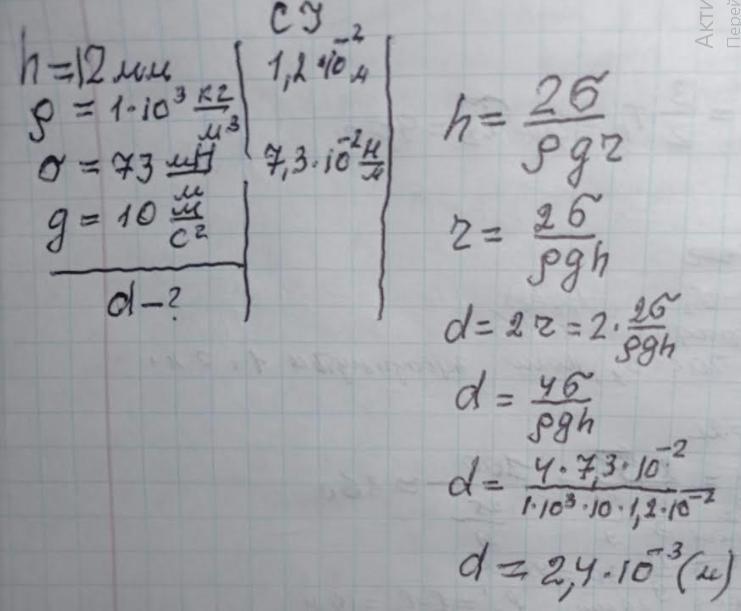 СИ
h = 12 мм 1,2·10⁻² м
ρ = 1·10³ кг/м³
σ = 73 мН/м 7,3·10⁻² Н/м
g = 10 м/с²
d - ?
h = 2σ/ρgr
r = 2σ/ρgh
d = 2r = 2·2σ/ρgh
d = 4σ/ρgh
d = 4·7,3·10⁻²/1·10³·10·1,2·10⁻²
d = 2,4·10⁻³ (м)
Акти
Перей